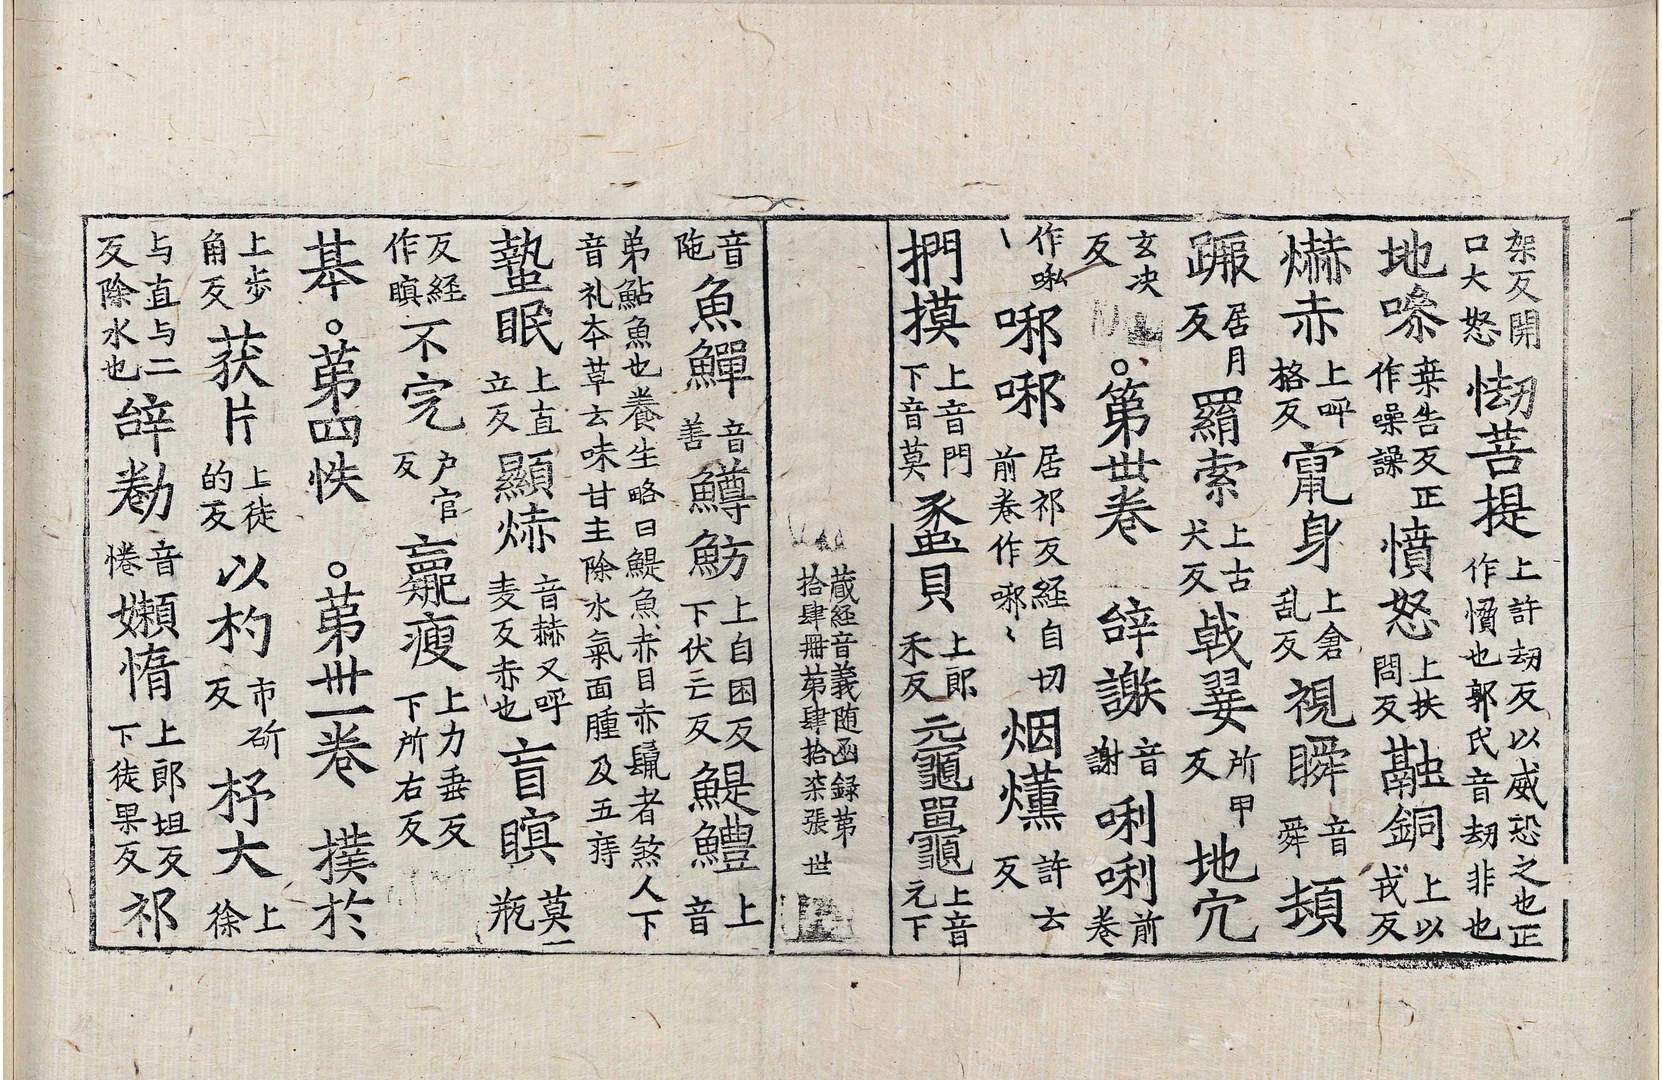 架反開口大怒㤼菩提上許刼反以威恐之也正作懎也郭氏音刼非也
地喿桒告反正作噪譟憤怒上扶問反融銅上以戎反
爀赤上呼格反竄身上倉乱反視瞬音舜頞
蹶居月反羂索上古犬反戟翣所甲反地穴
玄决反。第丗卷辝謝音謝唎唎前卷
作㖿㖿㖿居祁反経自切前卷作㖿〻烟爋許云反
捫摸上音門下音莫蠡貝上郎禾反黿鼉上音元下
蔵経音義随函録第拾肆冊第肆拾柒張 丗
音陁魚鱓音善鱒魴上自困反下伏亡反鯷鱧上音
弟鮎魚也養生略曰鯷魚赤目赤鬚者煞人下音礼本草云味甘主除水氣面腫及五痔
蟄眠上直立反顯烞音赫又呼麦反赤也盲瞑莫瓶
反経作瞑不完户官反羸瘦上力垂反下所右反
基。第四帙 。第丗一卷 撲於
上步角反荻片上徒的反以杓市斫反杼大上徐
与直与二反除水也辝勌音惓嬾惰上郎坦反下徒果反祁